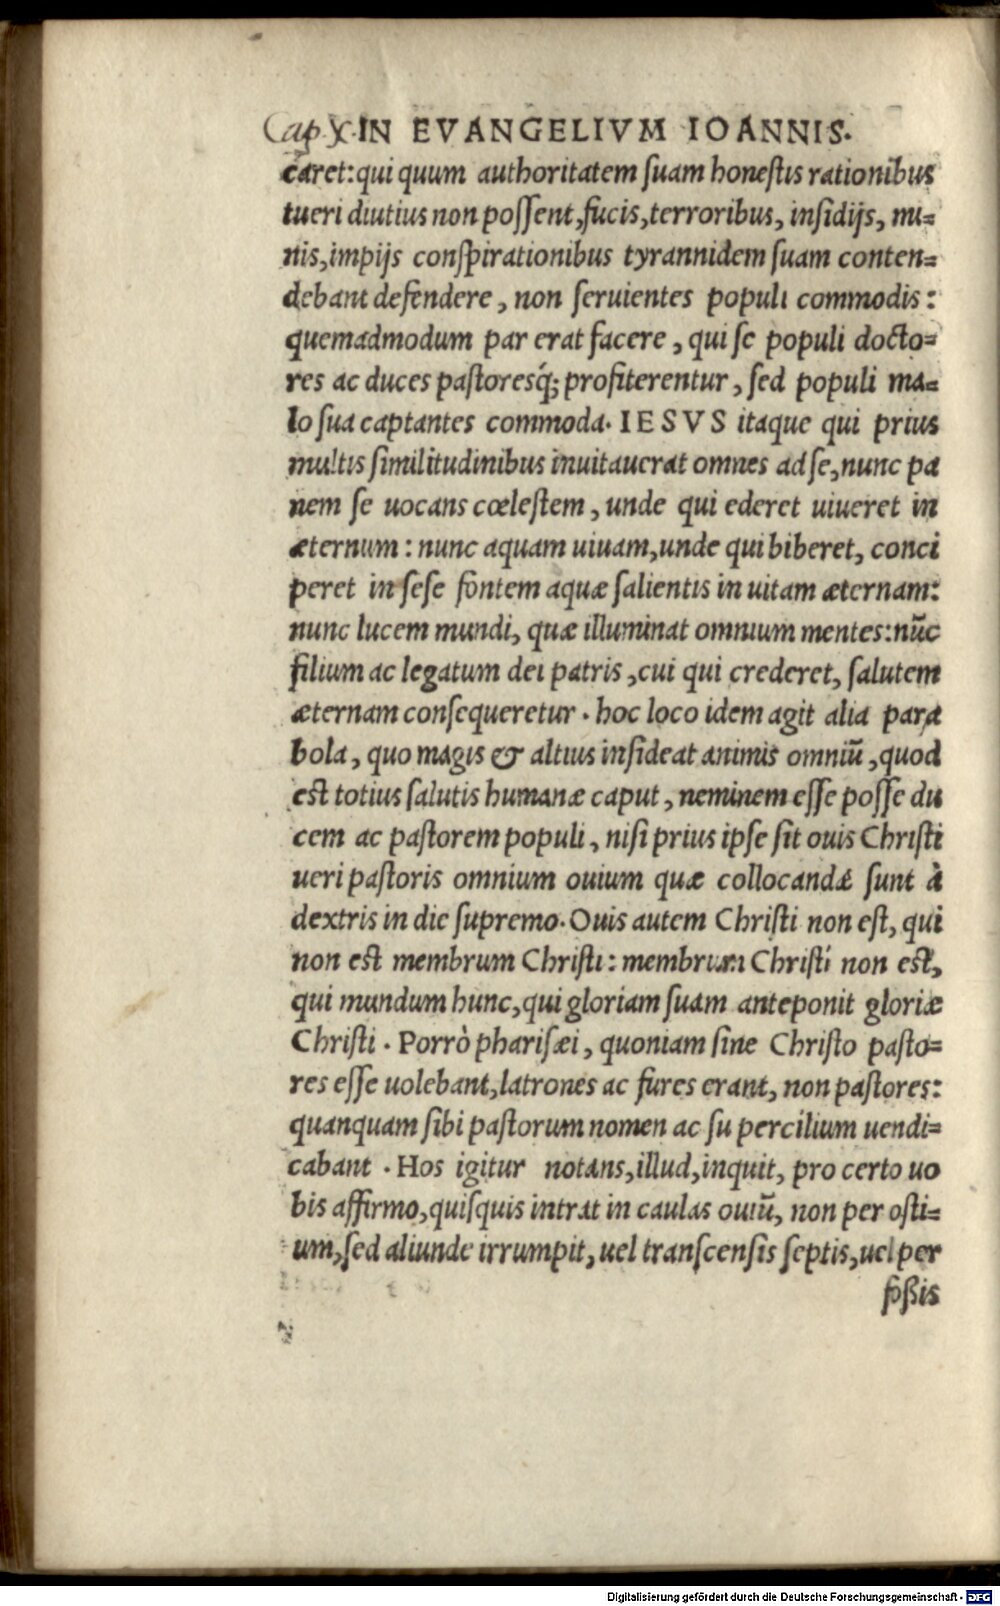 Cap X. IN EVANGELIVM IOANNIS.
caret: qui quum authoritatem ſuam honeſtis rationibus
tueri diutius non poſſent, fucis, terroribus, inſidijs, mi⸗
nis, impijs conſpirationibus tyrannidem ſuam conten⸗
debant defendere, non ſeruientes populi commodis:
quemadmodum par erat facere, qui ſe populi docto⸗
res ac duces paſtoresq́; profiterentur, ſed populi ma⸗
lo ſua captantes commoda. IESVS itaque qui prius
multis ſimilitudinibus inuitauerat omnes ad ſe, nunc pa
nem ſe uocans cœleſtem, unde qui ederet uiueret in
æternum: nunc aquam uiuam, unde qui biberet, conci
peret in ſeſe fontem aquæ ſalientis in uitam æternam:
nunc lucem mundi, quæ illuminat omnium mentes: nūc
filium ac legatum dei patris, cui qui crederet, ſalutem
æternam conſequeretur. hoc loco idem agit alia para
bola, quo magis & altius inſideat animis omniū, quod
est totius ſalutis humanæ caput, neminem eſſe poſſe du
cem ac paſtorem populi, niſi prius ipſe ſit ouis Chriſti
ueri paſtoris omnium ouium quæ collocandæ ſunt à
dextris in die ſupremo. Ouis autem Chriſti non eſt, qui
non est membrum Chriſti: membrum Chriſti non est,
qui mundum hunc, qui gloriam ſuam anteponit gloriæ
Chriſti. Porrò phariſæi, quoniam ſine Chriſto paſto⸗
res eſſe uolebant, latrones ac fures erant, non paſtores:
quanquam ſibi paſtorum nomen ac ſu percilium uendi⸗
cabant. Hos igitur notans, illud, inquit, pro certo uo
bis affirmo, quiſquis intrat in caulas ouiū, non per oſti⸗
um, ſed aliunde irrumpit, uel tranſcenſis ſeptis, uel per
foßis
Digitalisierung gefördert durch die Deutsche Forschungsgemeinschaft - DFG